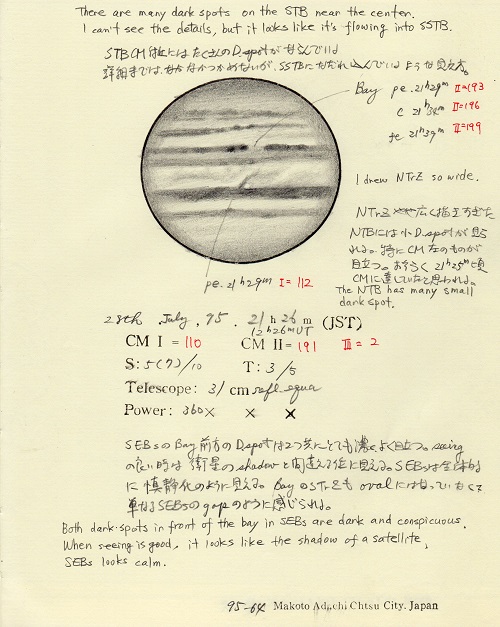 There are many dark spots on the STB near the center.
I can't see the details, but it looks like it's flowing into SSTB.
STB CM付近にはたくさんのD.spotがならんでいる
詳細までは、なかなかつかめないが、SSTBになだれこんでいるような見え方。
Bay pe. 21h29m II=193
c 21h34m II=196
fe 21h39m II=199
I drew NTrZ so wide.
NTrZ 広く描きすぎた
NTBには小D.spotが見ら
れる。特にCM左のものが
目立つ。おそらく21h25m頃
CMに達していたと思われる。
The NTB has many small
dark spot.
pe. 21h29m I=112
28th, July, '95. 21h26m (JST)
12h26m UT
CM I = 110 CM II = 191 III = 2
S: 5(7)/10 T: 3/5
Telescope: 31 cm refl. equa
Power: 360× × ×
SEBsのBay前方のD.spotは2つ共にとても濃くよく目立つ。seeing
の良い時は衛星のshadowと間違える位に見える。SEBsは全体的
に慎静化のように見える。BayのSTrZもovalにはなっていなくて
単なるSEBsのgapのように感じられる。
Both dark spots in front of the bay in SEBs are dark and conspicuous.
When seeing is good, it looks like the shadow of a satellite,
SEBs looks calm.
95-64 Makoto Adachi Ohtsu City. Japan